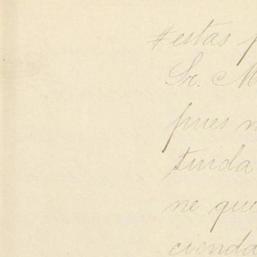 estas p
Sr. M
pues n
tienda
ne que
cienda